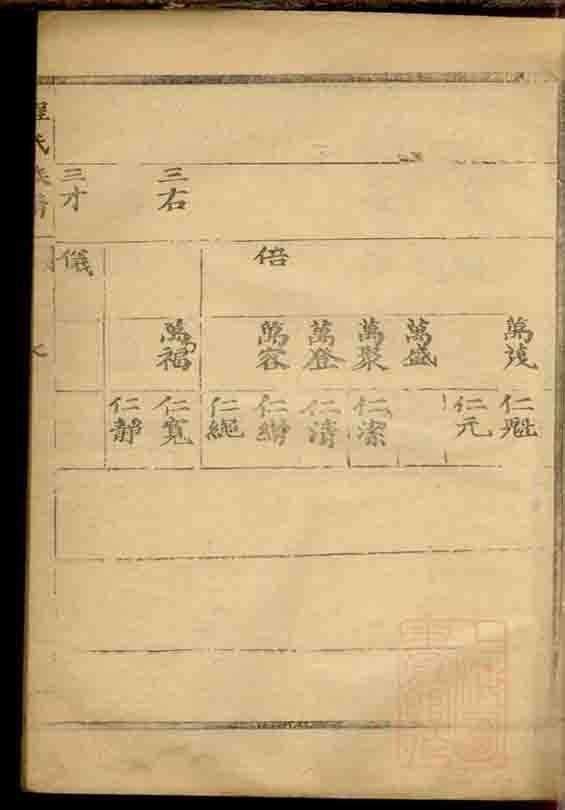 三右
三才
倍
儀
萬茂
萬盛
萬聚
萬登
萬容
萬福
仁魁
仁元
仁潔
仁清
仁繒
仁繩
仁寬
仁靜
程氏族譜